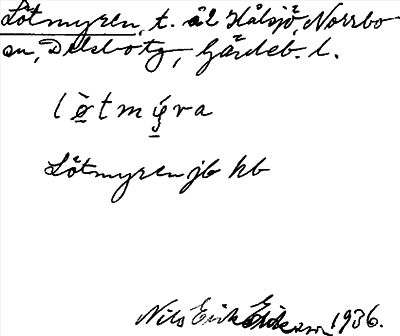 Lötmyren, t. ål Hålsjö, Norrbo
sn, Delsbo tg, Gävleb. l.
lø̀tmýra
Lötmyren jb hb
Nils Erik Eriksson 1936.